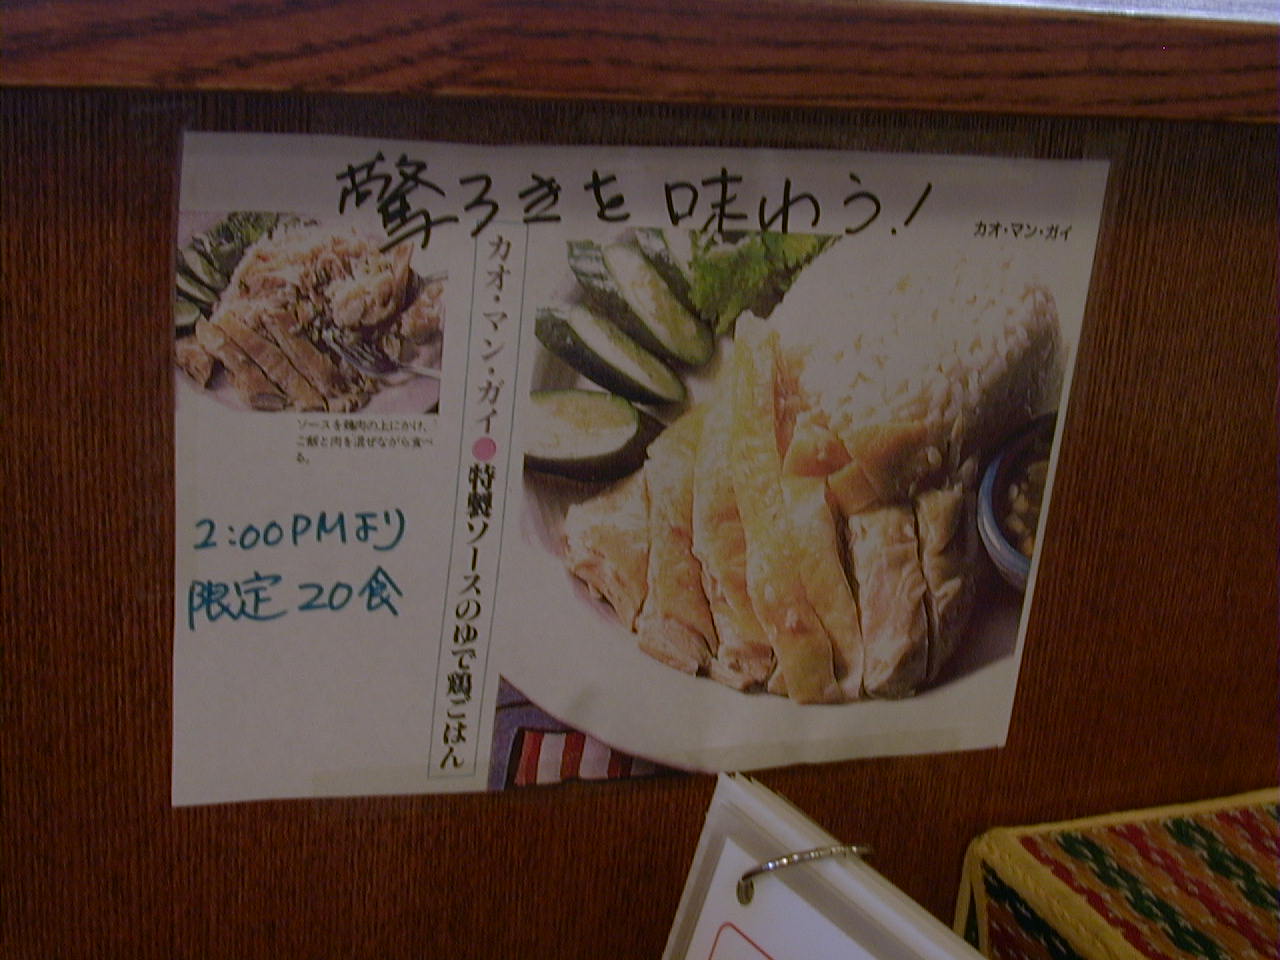 驚ろきを味わう!
カオ・マン・ガイ
カオ・マン・ガイ●特製ソースのゆで鶏ごはん
ソースを鶏肉の上にかけ、
ご飯と肉を混ぜながら食べ
る。
2:00PMより
限定20食